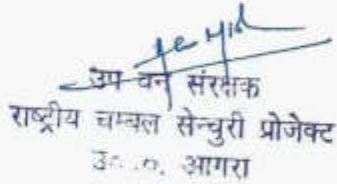 उप वन संरक्षक
राष्ट्रीय चम्बल सेन्चुरी प्रोजेक्ट
आगरा